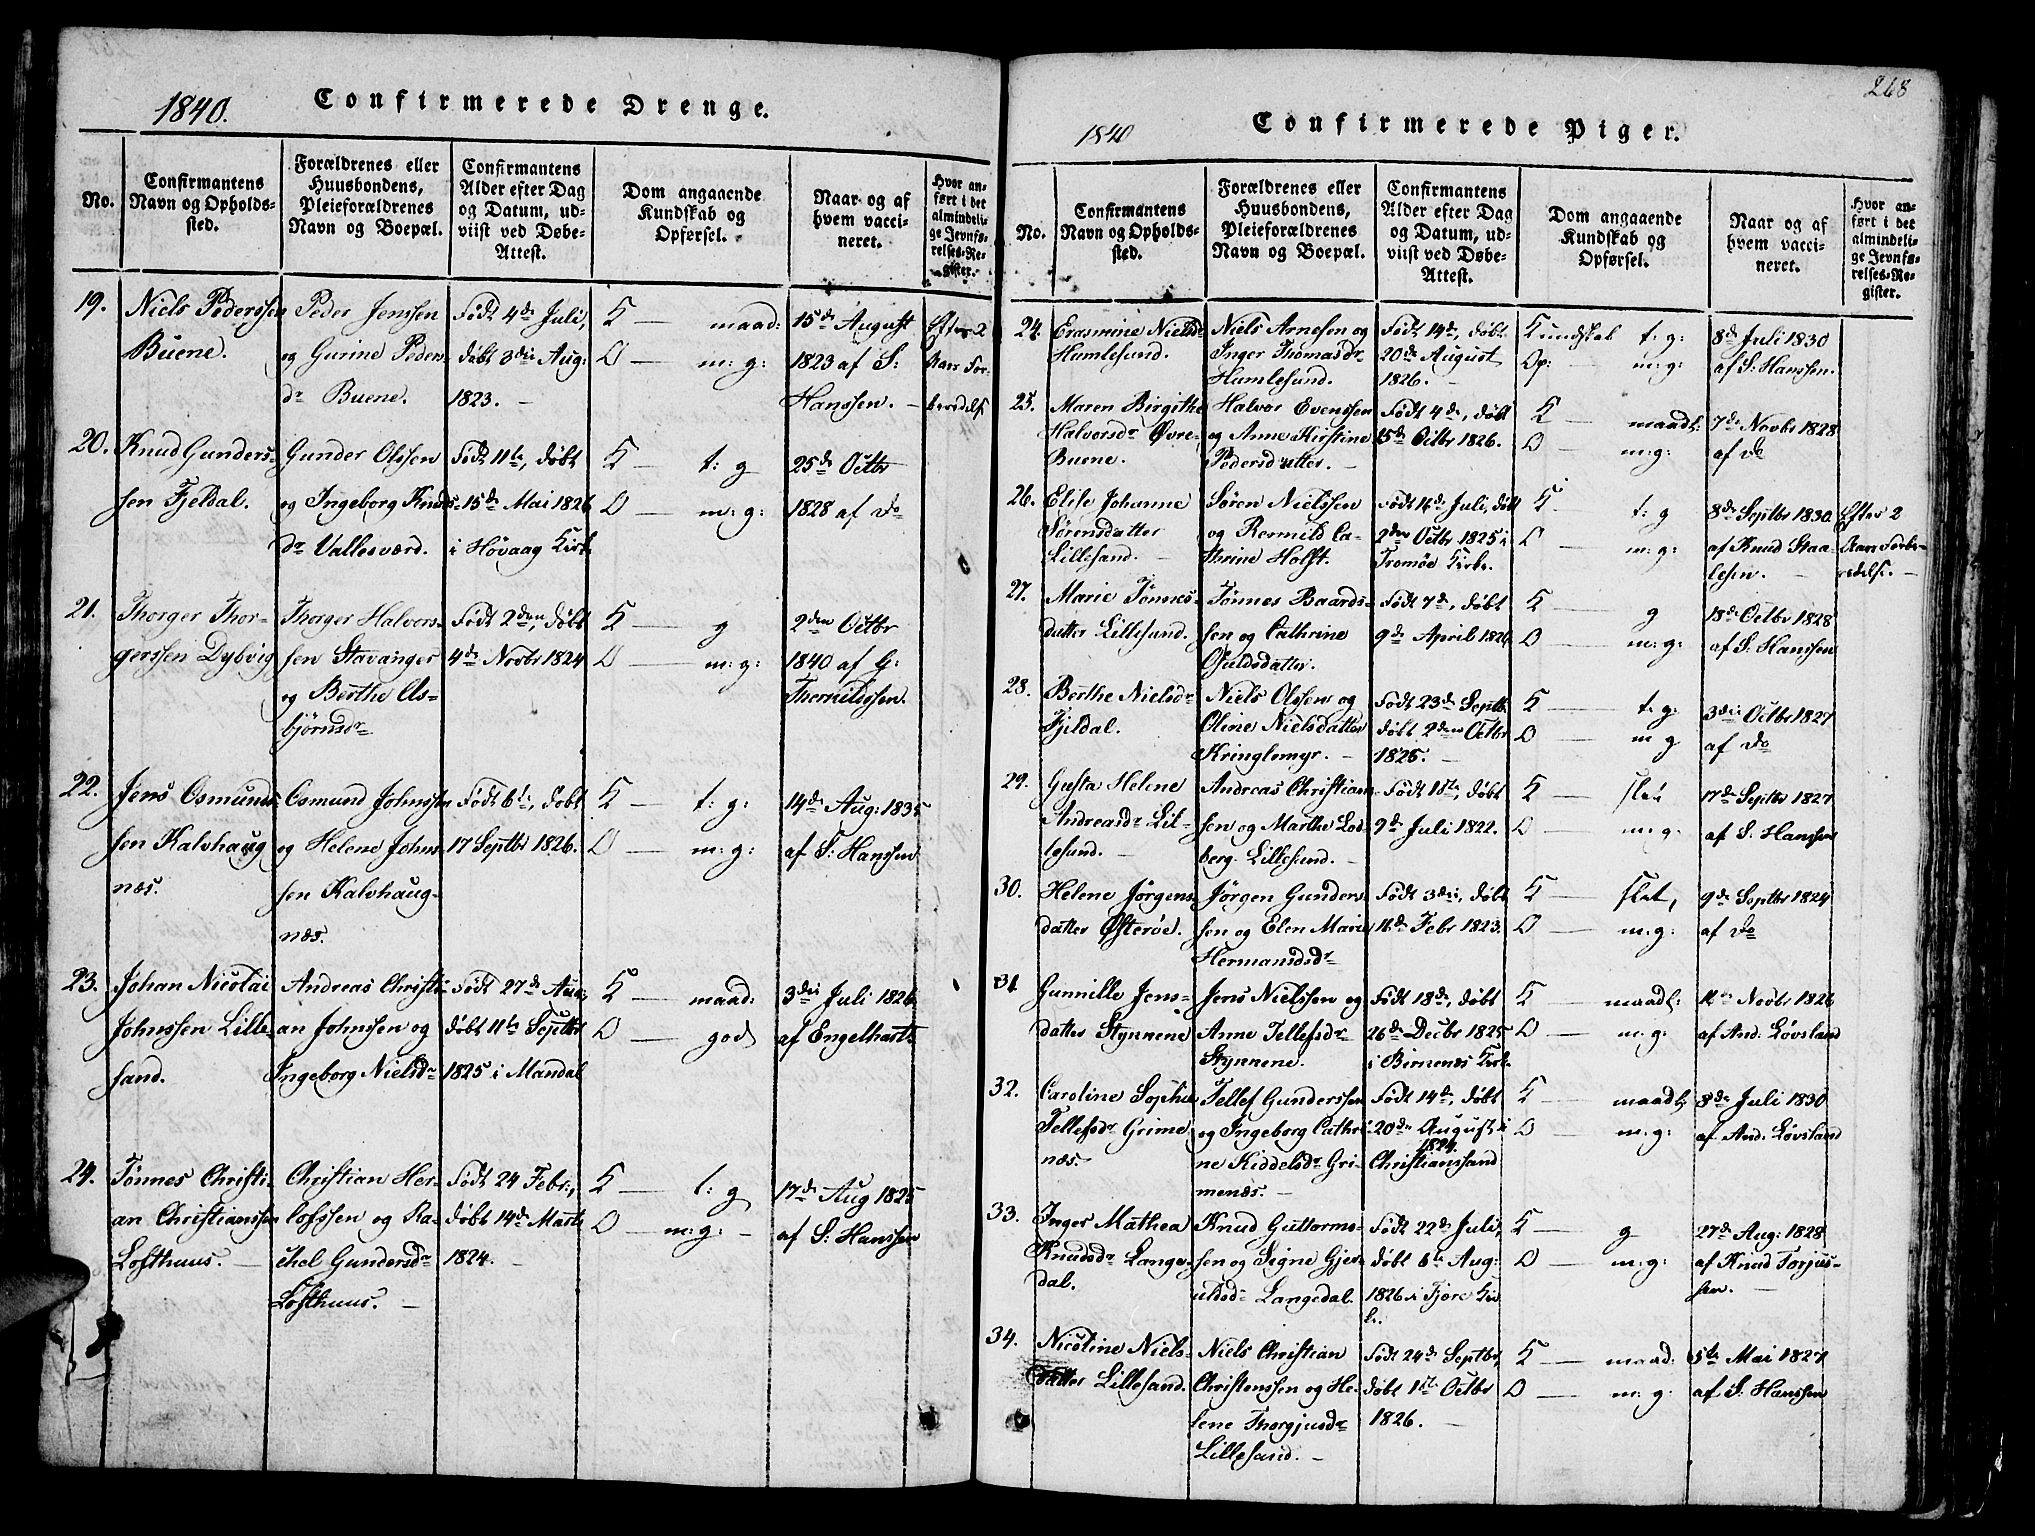 1840.
Confirmerede Drenge.
No.
Confirmantens
Navn og Opholds-
sted.
Forældrenes eller
Huusbondens,
Pleieforældrenes
Navn og Boepæl.
Confirmantens
Alder efter Dag
og Datum, ud-
viist ved Døbe-
Attest.
Dom angaaende
Kundskab og
Opførsel.
Naar og af
hvem vacci-
neret.
Hvor an-
ført i det
almindeli-
ge Jevnfø-
relses-Re-
gister.
19.
Niels Pederssen
Buene.
Peder Jenssen
og Gurine Peders-
dr Buene.
Født 4de Juli,
døbt 3die Aug:
1823. -
K — maad:
O — m: g:
15de August
1823 af S:
Hanssen. -
Efter 2
Aars For-
beredelse
20.
Knud Gunders-
sen Fjeldal.
Gunder Olssen
og Ingeborg Knuds-
dr Vallesværd.
Født 11te, døbt
15de Mai 1826
i Høvaag Kirk.
K — t: g
O — m: g:
25de Octbr
1828 af do
21.
Thorger Thor-
gerssen Dybvig
Thorger Halvors-
sen Stavanger
og Berthe As-
bjørnsdr
Født 2den, døbt
4de Novbr 1824
K — g
O — m: g:
2den Octbr
1840 af G:
Thormilssen.
22.
Jens Osmunds-
sen Kalvhaug
næs.
Osmund Johnssen
og Helene Johns-
sen Kalvhaug-
næs.
Født 6te, døbt
17 Septbr 1826.
K — t: g:
O — m: g:
14de Aug: 1835
af S: Hanssen
23.
Johan Nicolai
Johnssen Lille-
sand.
Andreas Christi-
an Johnssen og
Ingeborg Nielsdr
Født 27de Aug,
døbt 11te Septbr
1825 i Mandal
K — maad:
O — god
3die Juli 1826
af Engelhart
24.
Tønnes Christi-
an Christianssen
Lofthuus. -
Christian Her-
lofssen og Ra-
chel Gundersdr
Lofthuus. -
Født 24 Febr.,
døbt 14de Marts
1824. -
K — t: g
O — m: g: -
17de Aug 1825
af S: Hanssen
268
1840
Confirmerede Piger.
No.
Confirmantens
Navn og Opholds-
sted.
Forældrenes eller
Huusbondens,
Pleieforældrenes
Navn og Boepæl.
Confirmantens
Alder efter Dag
og Datum, ud-
viist ved Døbe-
Attest.
Dom angaaende
Kundskab og
Opførsel.
Naar og af
hvem vacci-
neret.
Hvor an-
ført i det
almindeli-
ge Jevnfø-
relses-Re-
gister.
24.
Erasmine Nielsdr
Humlesund.
Niels Arnesen og
Inger Thomasdr
Humlesund.
Født 14de, døbt
20de August
1826. -
Kundskab t: g:
Op: — m: g:
8de Juli 1830
af S: Hanssen.
25.
Maren Birgithe
Halvorsdr Øvre-
Buene.
Halvor Evenssen
og Anne Kirstine
Pedersdatter. -
Født 4de, døbt
15de Octbr 1826.
K — maadl:
O — m: g:
7de Novbr 1828
af do
26.
Elise Johanne
Sørensdatter
Lillesand. -
Søren Nielssen
og Romild Ca-
thrine Holst.
Født 14de Juli, døbt
2den Octbr 1825 i
Tromøe Kirke.
K. t: g
O — m: g:
8de Septbr 1830
af Knud Staa-
lesen. -
Efter 2
Aars Forbe-
redelse. -
27.
Marie Tønnes-
datter Lillesand.
Tønnes Baards-
sen og Cathrine
Osuldsdatter.
Født 7de, døbt
9de April 1826
K — g
O — m: g:
18de Octbr 1828
af S: Hanssen
28.
Berthe Nielsdr
Fjeldal.
Niels Olssen og
Olene Nielsdatter
Kringlemyr. -
Født 23de Septbr.
døbt 2den Octbr
1825. -
K — t: g:
O — m g
3die Octbr 1827
af do
29.
Gusta Helene
Andreasdr Lil-
lesand. -
Andreas Christian-
sen og Marthe Lod-
berg. Lillesand. -
Født 1ste, døbt
9de Juli 1822. -
K — slet
O — m: g:
17de Septbr 1827
af S. Hanssen
30.
Helene Jørgens-
datter Østerøe.
Jørgen Gunders-
sen og Elen Marie
Hermansdr
Født 3die, døbt
16de Febr 1823.
K — slet,
O — m: g:
9de Septbr 1824
af do
31.
Gunnille Jens-
datter Stynnene
Jens Nielssen og
Anne Tellefsdr
Stynnene.
Født 18de, døbt
26de Decbr 1825
i Birenæs Kirke.
K — maadl:
O — m: g:
11te Novbr 1826
af And. Løvsland
32.
Caroline Sophie
Tellefsdr Grime
næs. -
Tellef Gunderssen
og Ingeborg Cathri-
ne Kiddelsdr Gri-
menæs. -
Født 14de, døbt
20de August i
1824.
Christianssand
K — maadl:
O — m: g:
8de Juli 1830
af And. Løvsland
33.
Inger Mathea
Knudsdr Lange-
dal.
Knud Guttorms-
sen og Signe Gjer-
uldsdr Langedal.
Født 22de Juli,
døbt 6te Aug:
1826 i Fjære Kir
ke.
K — g
O — m: g:
27de Aug: 1828
af Knud Torjus-
sen. -
34.
Nicoline Niels-
datter Lillesand.
Niels Christian
Christenssen og He-
lene Thorgjusdr
Lillesand. -
Født 24de Septbr
døbt 1ste Octbr
1826. -
K — maad:
O — m: g:
5te Mai 1827
af S: Hanssen